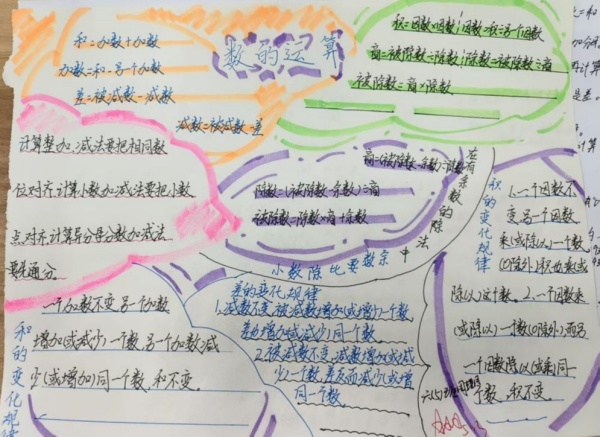 数的运算
和=加数+加数
加数=和-另一个加数
差=被减数-减数
减数=被减数-差
积=因数×因数 因数=积÷另一个因数
商=被除数÷除数 除数=被除数÷商
被除数=商×除数
计算整加、减法要把相同数
位对齐计算小数加减法要把小数
点对齐计算异分母分数加减法
要先通分
在有余数的除法中
商=(被除数-余数)÷除数
除数=(被除数-余数)÷商
被除数=除数×商+余数
小数除比要数余
积的变化规律
1.一个因数不
变,另一个因数
乘(或除以)一个数
(0除外)积也乘(或
除以)这个数。2.一个因数乘
(或除以)一个数(0除外)而另
一个因数除以(或乘)同一
个数,积不变。
和的变化规律
一个加数不变,另一个加数
增加(或减少)一个数,另一个加数减
少(或增加)同一个数,和不变。
差的变化规律
1.减数不变,被减数增加(或减少)一个数,
差也增加(或减少)同一个数
2.被减数不变,减数增加(或减
少)一个数,差反而减少(或增
同一个数